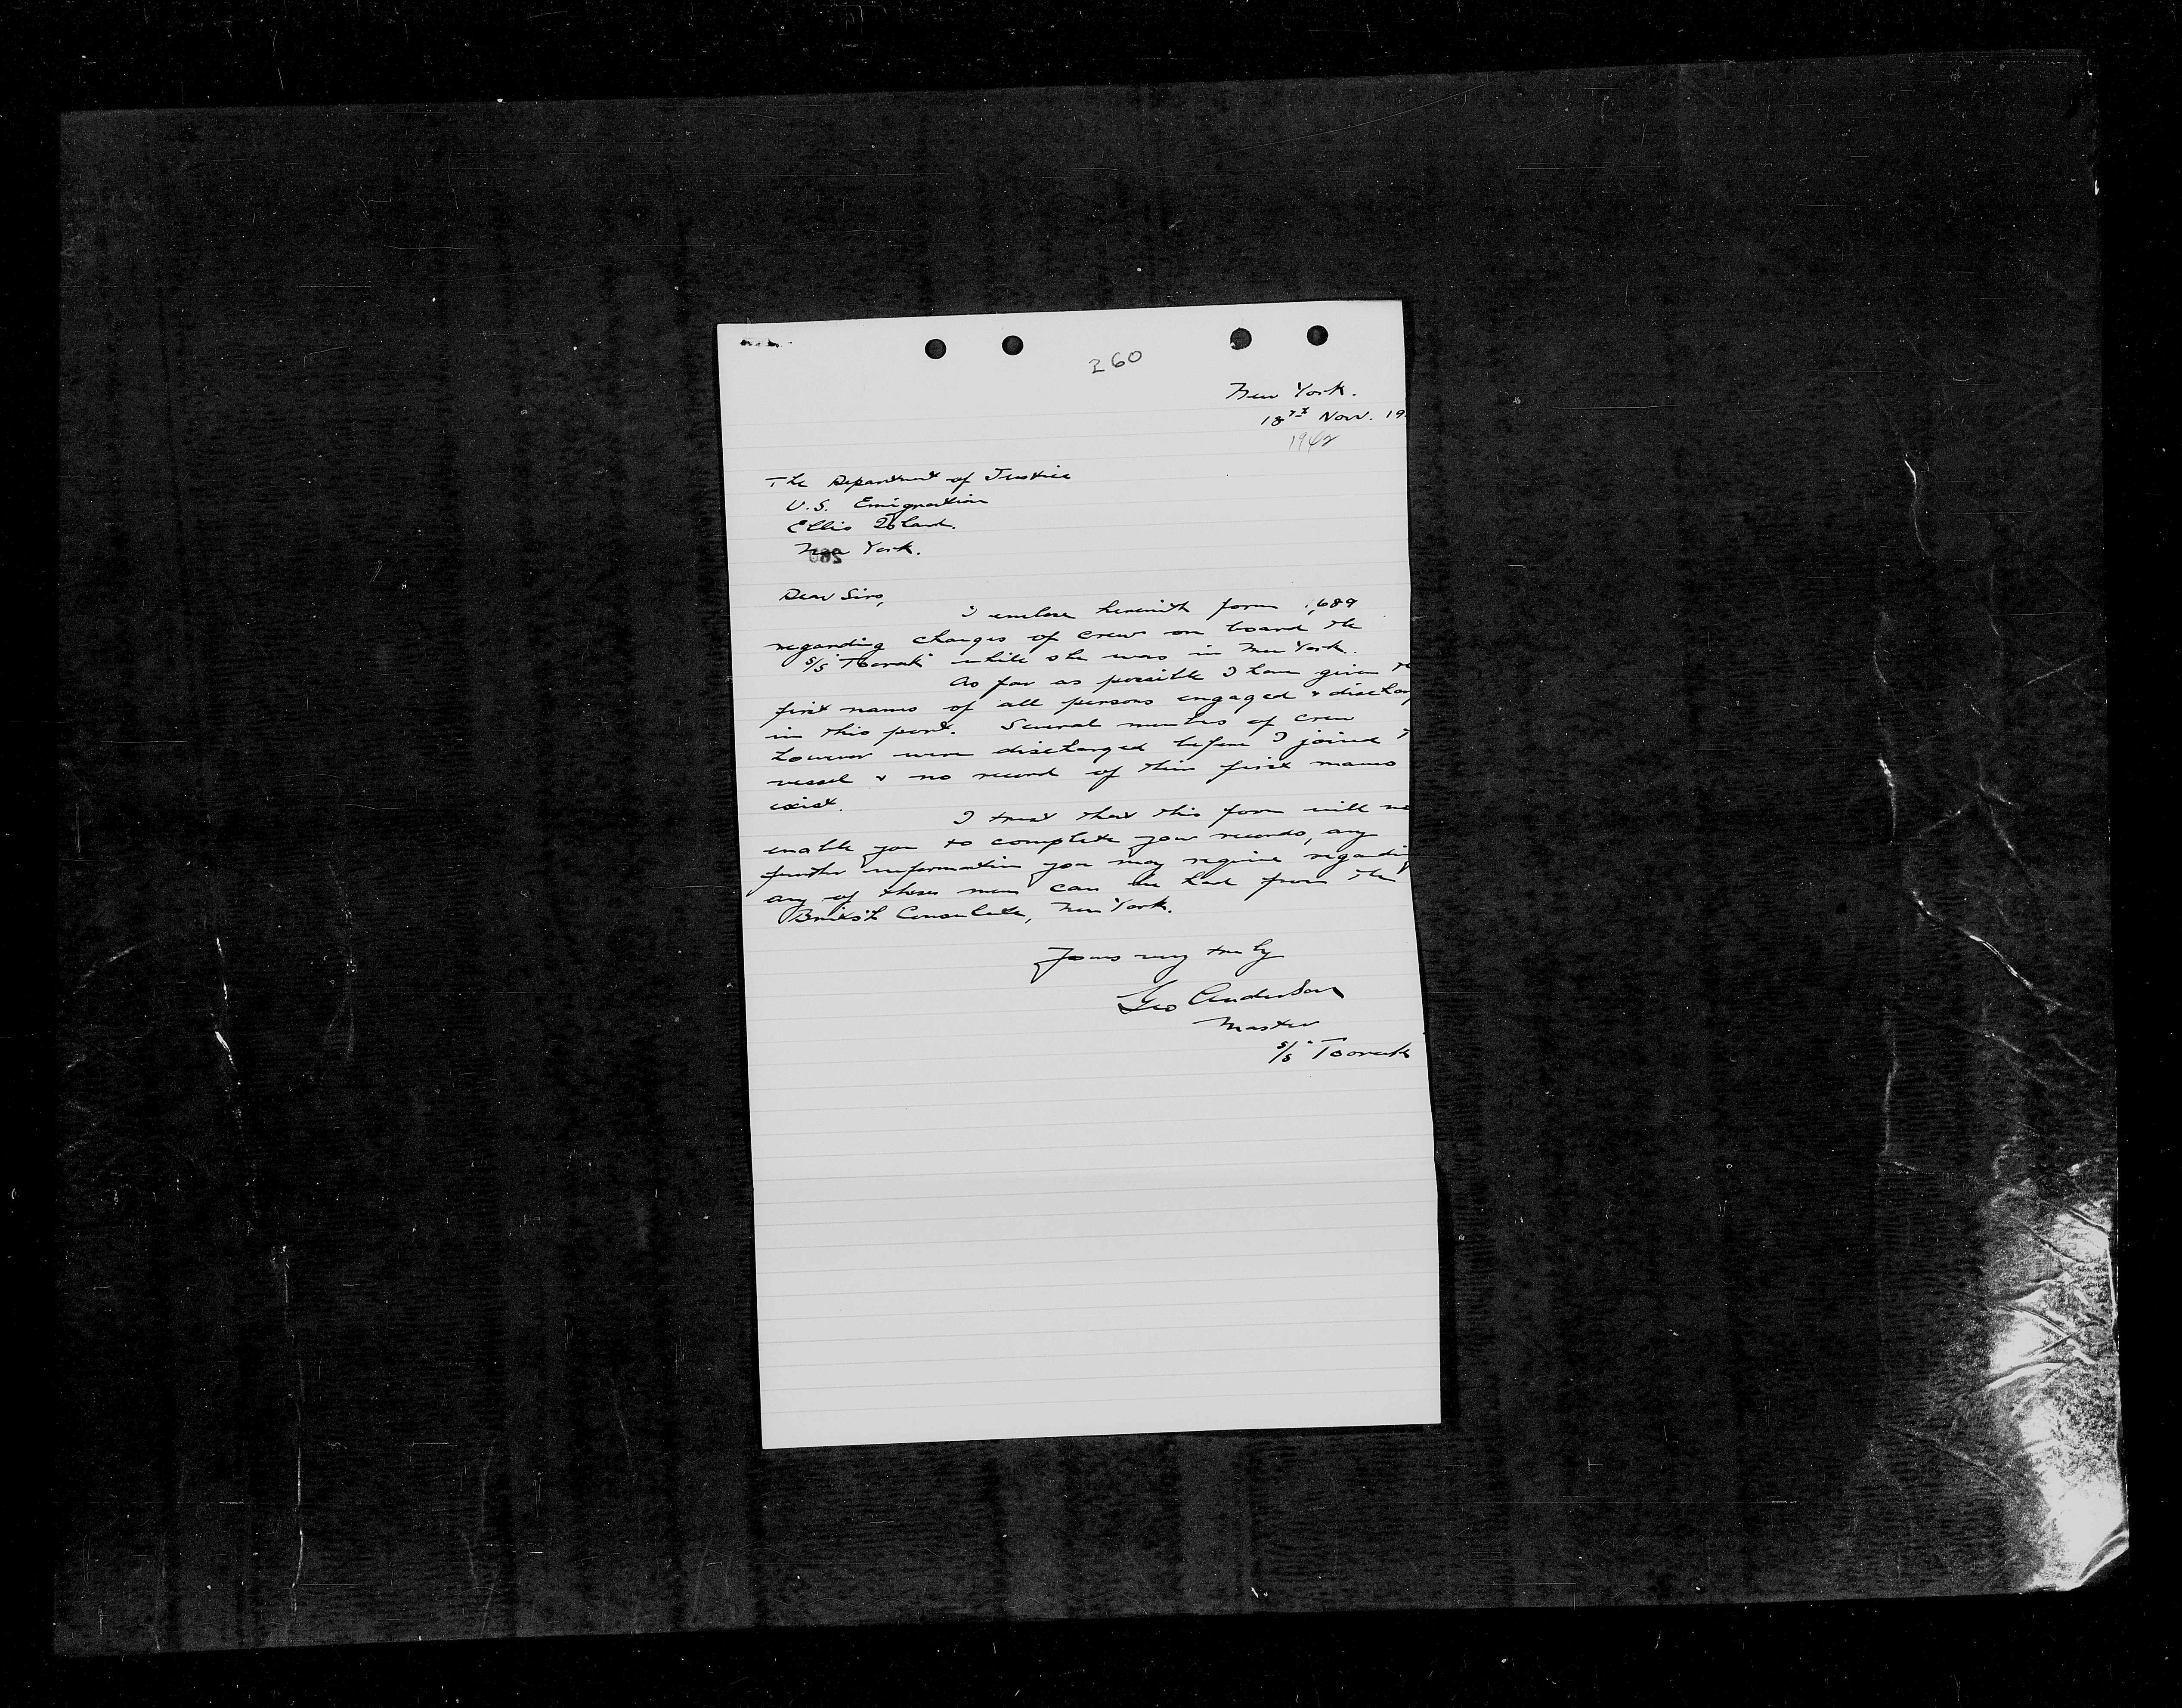 260
New York.
18th Nov. 19
1942
The Department of Justice
U.S. Emigration
Ellis Island.
New York.
Dear Sirs,
I enclose herewith form 689
regarding changes of crew on board the
s/s "Toorak" while she was in New York.
As far as possible I have given
first names of all persons engaged & dischar
in this port. Several members of crew
however were discharged before I joined
vessel & no record of their first names
exist.
I trust that this form will
enable you to complete your records, any
further information you may require regarding
any of these men can be had from the
British Consulate, New York.
Yours very truly
Geo Anderson
Master
s/s "Toorak